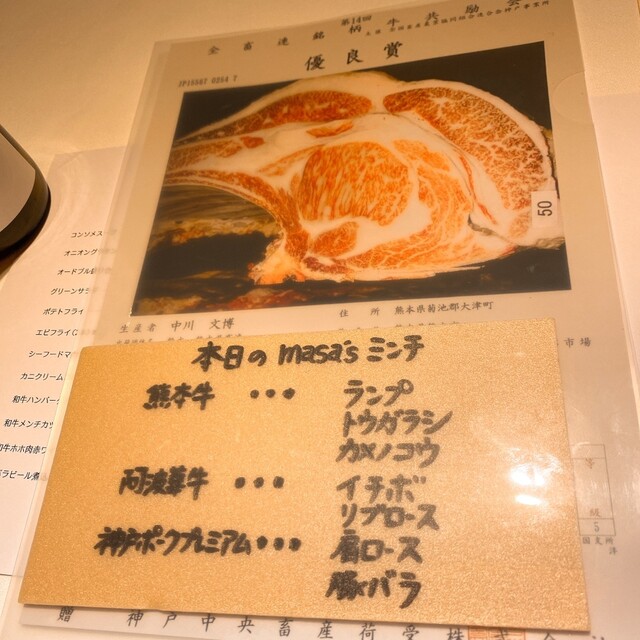 第14回
全畜連銘柄牛共励会
優良賞
JP16567 0264 7
50
生産者 中川 文博
住所 熊本県菊池郡大津町
市場
等級 5
コンソメス
オニオング
オードブル
グリーンサラ
ポテトフライ
エビフライ
シーフードマ
カニクリーム
和牛ハンバー
和牛メンチカツ
和牛ホホ肉赤ワ
バラビール煮
本日の masa's ミンチ
熊本牛 ・・・ ランプ
トウガラシ
カメノコウ
阿波華牛 ・・・ イチボ
リブロース
神戸ポークプレミアム・・・ 肩ロース
豚バラ
贈 神戸中央畜産荷受株式会